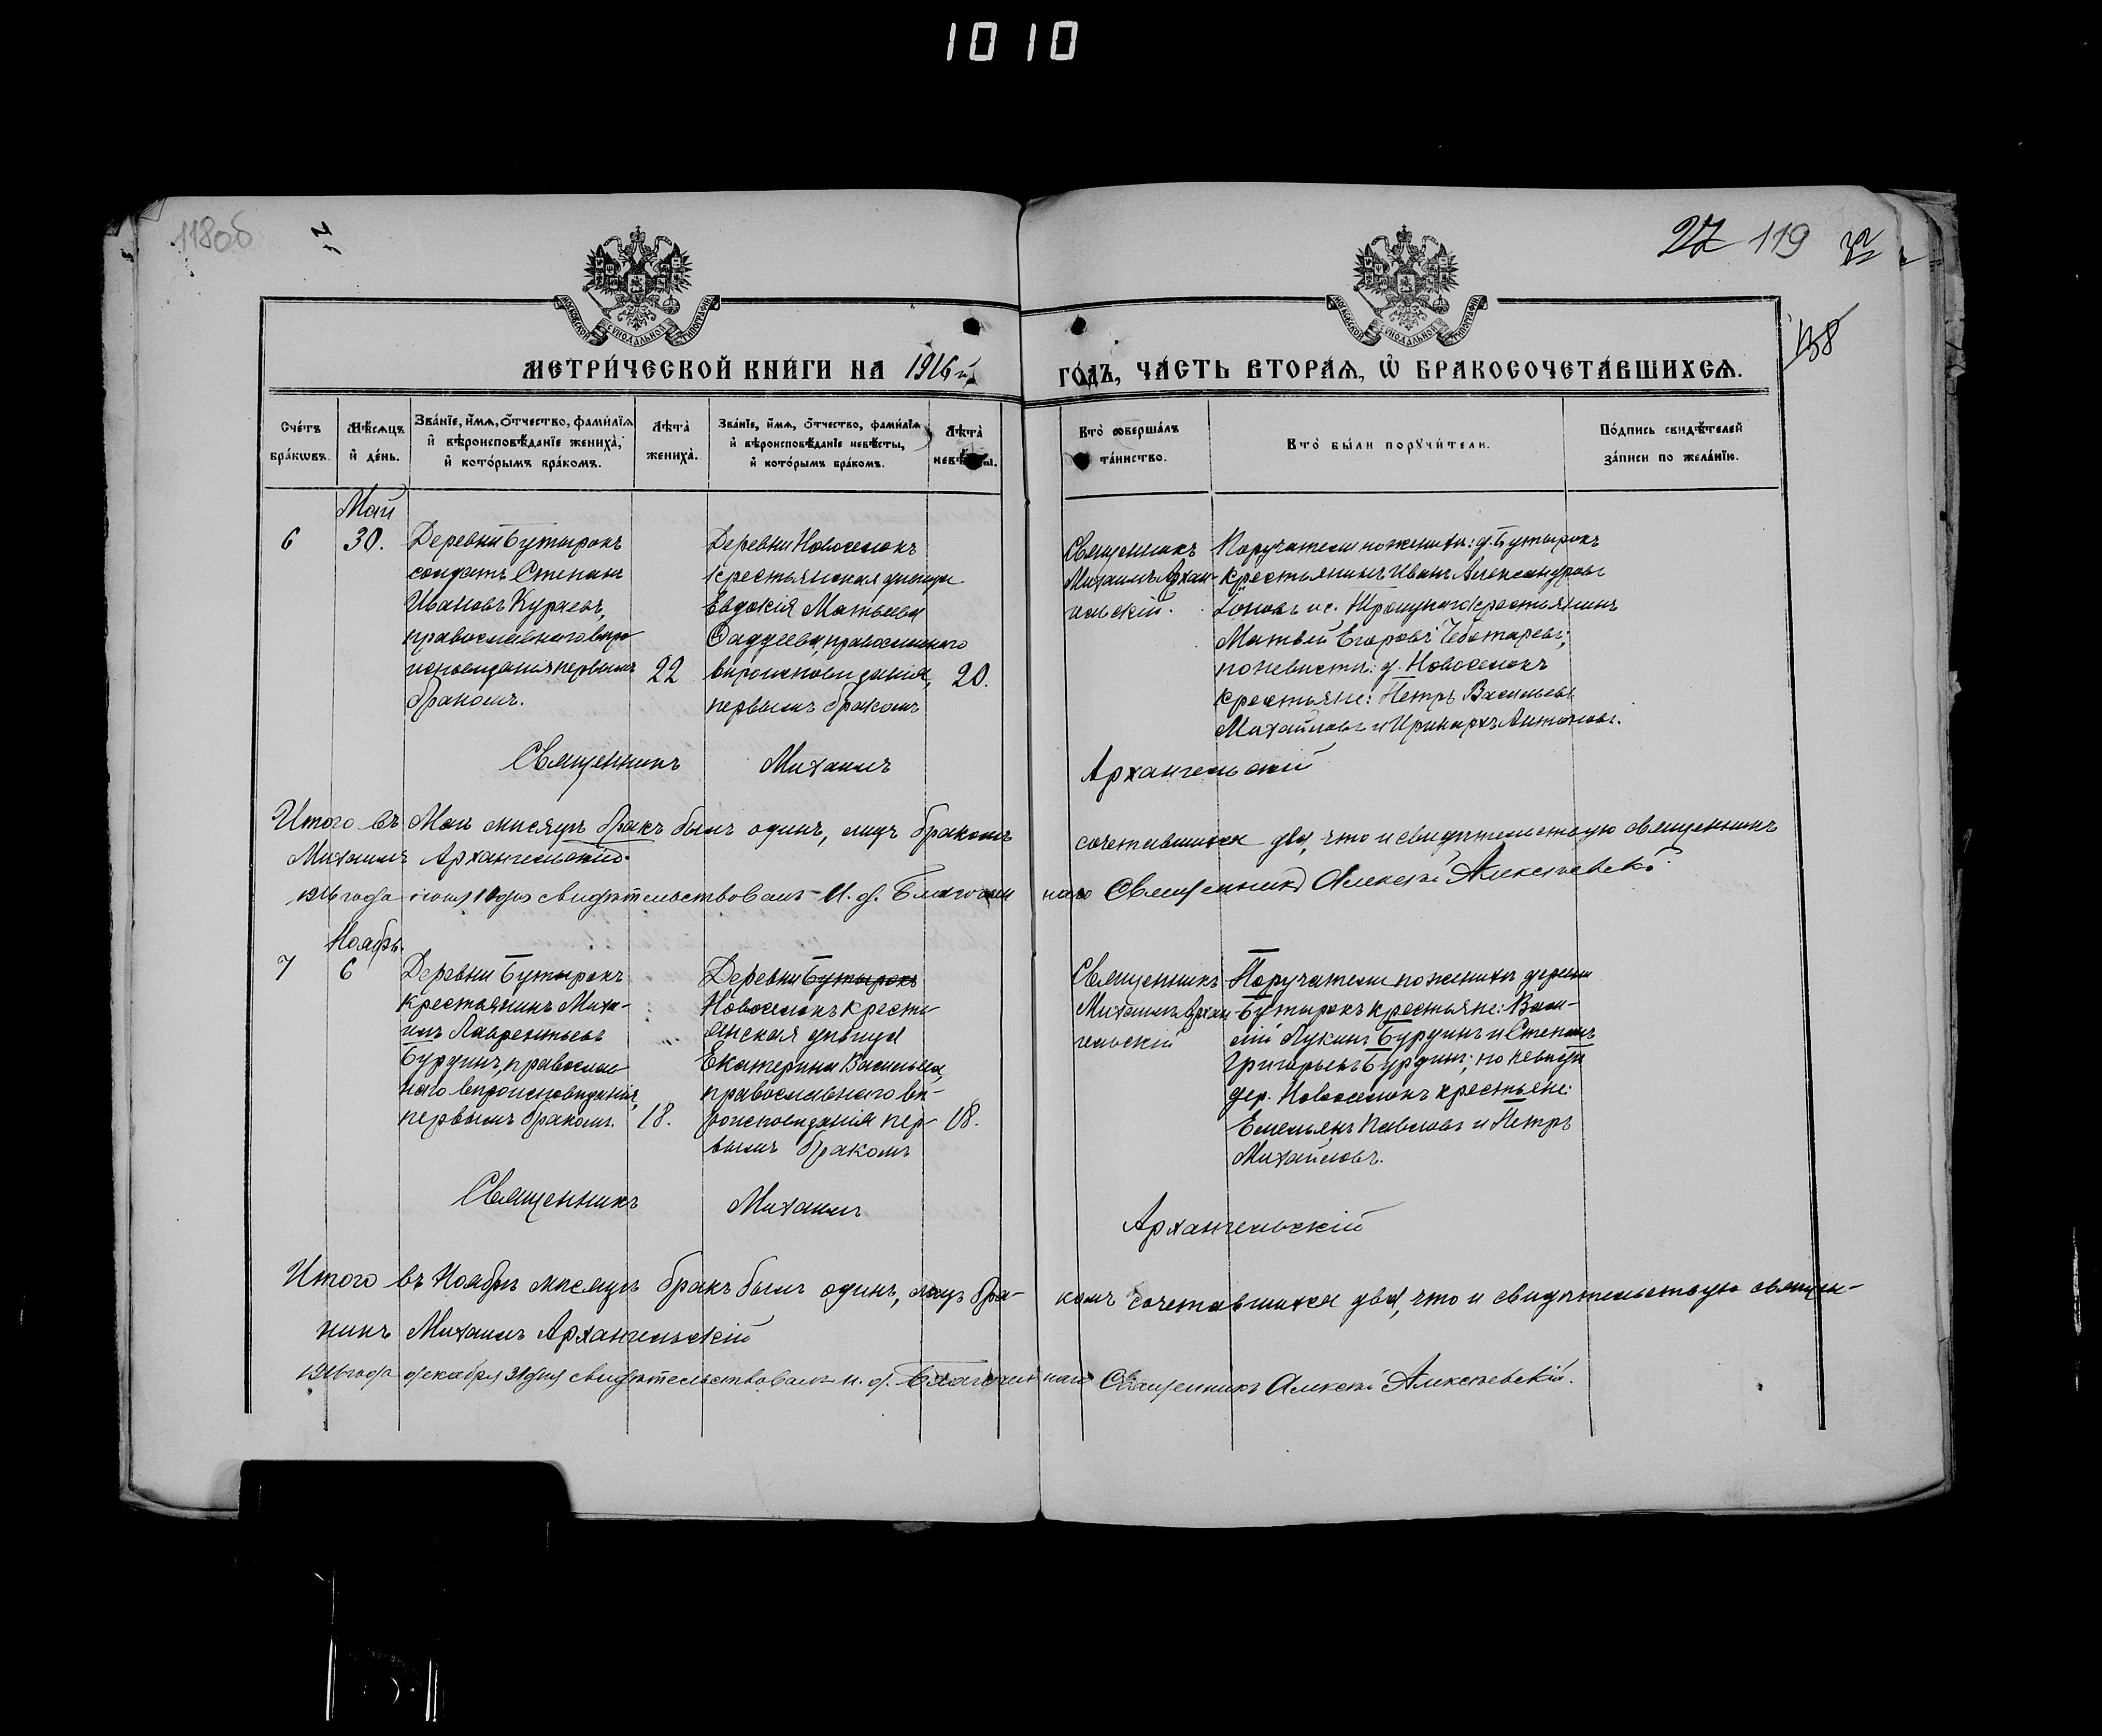 1010
118об
27 119
158
МОСКОВСКОЙ СѴНОДАЛЬНОЙ ТИПОГРАФІИ
МОСКОВСКОЙ СѴНОДАЛЬНОЙ ТИПОГРАФІИ
МЕТРИ́ЧЕСКОЙ КНИ́ГИ НА 1916й ГО́ДЪ, ЧА́СТЬ ВТОРА́Ѧ, Ѡ҆ БРАКОСОЧЕТА́ВШИХСѦ.
Сче́тъ бра́кѡвъ.
Мѣ́сѧцъ и҆ де́нь.
Зва́нїе, и҆́мѧ, ѻ҆́тчество, фами́лїѧ и҆ вѣроисповѣ́данїе жениха̀, и҆ кото́рымъ бра́комъ.
Лѣ́та жениха̀.
Зва́нїе, и҆́мѧ, ѻ҆́тчество, фами́лїѧ и҆ вѣроисповѣ́данїе невѣ́сты, и҆ кото́рымъ бра́комъ.
Лѣ́та невѣ́сты.
Кто̀ соверша́лъ та́инство.
Кто̀ бы́ли порꙋчи́тели.
По́дпись свидѣ́телей за́писи по жела́нїю.
Май
6
30.
Деревни Бутырокъ
солдатъ Степанъ
Ивановъ Кураевъ,
православнаго вѣро
исповѣданія первымъ
бракомъ.
22
Деревни Новоселокъ
крестьянская дѣвица
Евдокія Матвѣева
Фаддеева, православнаго
вѣроисповѣданія,
первымъ бракомъ
20.
Священникъ
Михаилъ Архан-
гельскій.
Поручатели по женихѣ: д. Бутырокъ
крестьянинъ Иванъ Александровъ
Іоновъ и с. Трощунаго крестьянинъ
Матвѣй Егоровъ Чеботаревъ;
по невѣстѣ: д. Новоселокъ
крестьяне: Петръ Васильевъ
Михайловъ и Иринархъ Антоновъ.
Священникъ Михаилъ Архангельскій
Итого въ Маѣ мѣсяцѣ бракъ былъ одинъ, лицъ бракомъ сочетавшихся два, что и свидѣтельствую священникъ
Михаилъ Архангельскій.
1916 года іюня 10 дня свидѣтельствовалъ И. д. Благочиннаго Священникъ Алексѣй Алексѣевскій
Ноябрь.
7
6
Деревни Бутырокъ
крестьянинъ Миха-
илъ Лаврентьевъ
Бурдинъ, православ
наго вѣроисповѣданія,
первымъ бракомъ.
18.
Деревни Бутырокъ
Новоселокъ кресть
янская дѣвица
Екатерина Васильева,
православнаго вѣ-
роисповѣданія пер-
вымъ бракомъ
18.
Священникъ
МихаилъАрхан
гельскій
Поручатели по женихѣ деревни
Бутырокъ крестьяне: Васи-
лій Лукинъ Бурдинъ и Степанъ
Григорьевъ Бурдинъ; по невѣстѣ
дер. Новоселокъ крестьяне:
Емельянъ Павловъ и Петръ
Михайловъ.
Священникъ Михаилъ Архангельскій
Итого въ Ноябрѣ мѣсяцѣ бракъ былъ одинъ, лицъ бра- комъ сочетавшихся два, что и свидѣтельствую священ-
никъ Михаилъ Архангельскій
1916 года декабря 31 дня свидѣтельствовалъ и. д. Благочиннаго Священникъ Алексѣй Алексѣевскій.